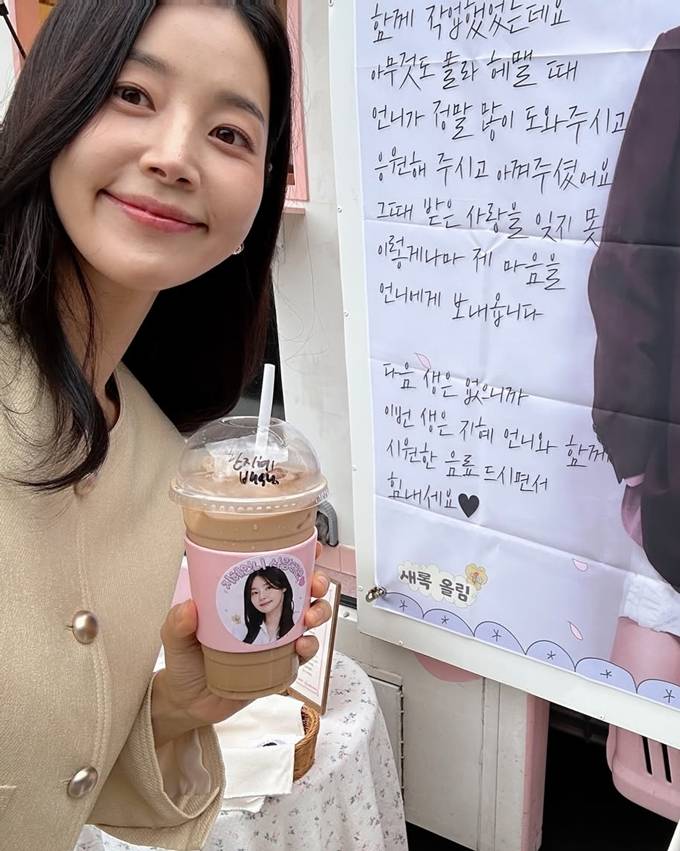 함께 작업했었는데요
아무것도 몰라 헤맬 때
언니가 정말 많이 도와주시고
응원해 주시고 아껴주셨어요
그때 받은 사랑을 잊지 못
이렇게나마 제 마음을
언니에게 보내옵니다
다음 생은 없으니까
이번 생은 지혜 언니와 함께
시원한 음료 드시면서
힘내세요♥
새록 올림